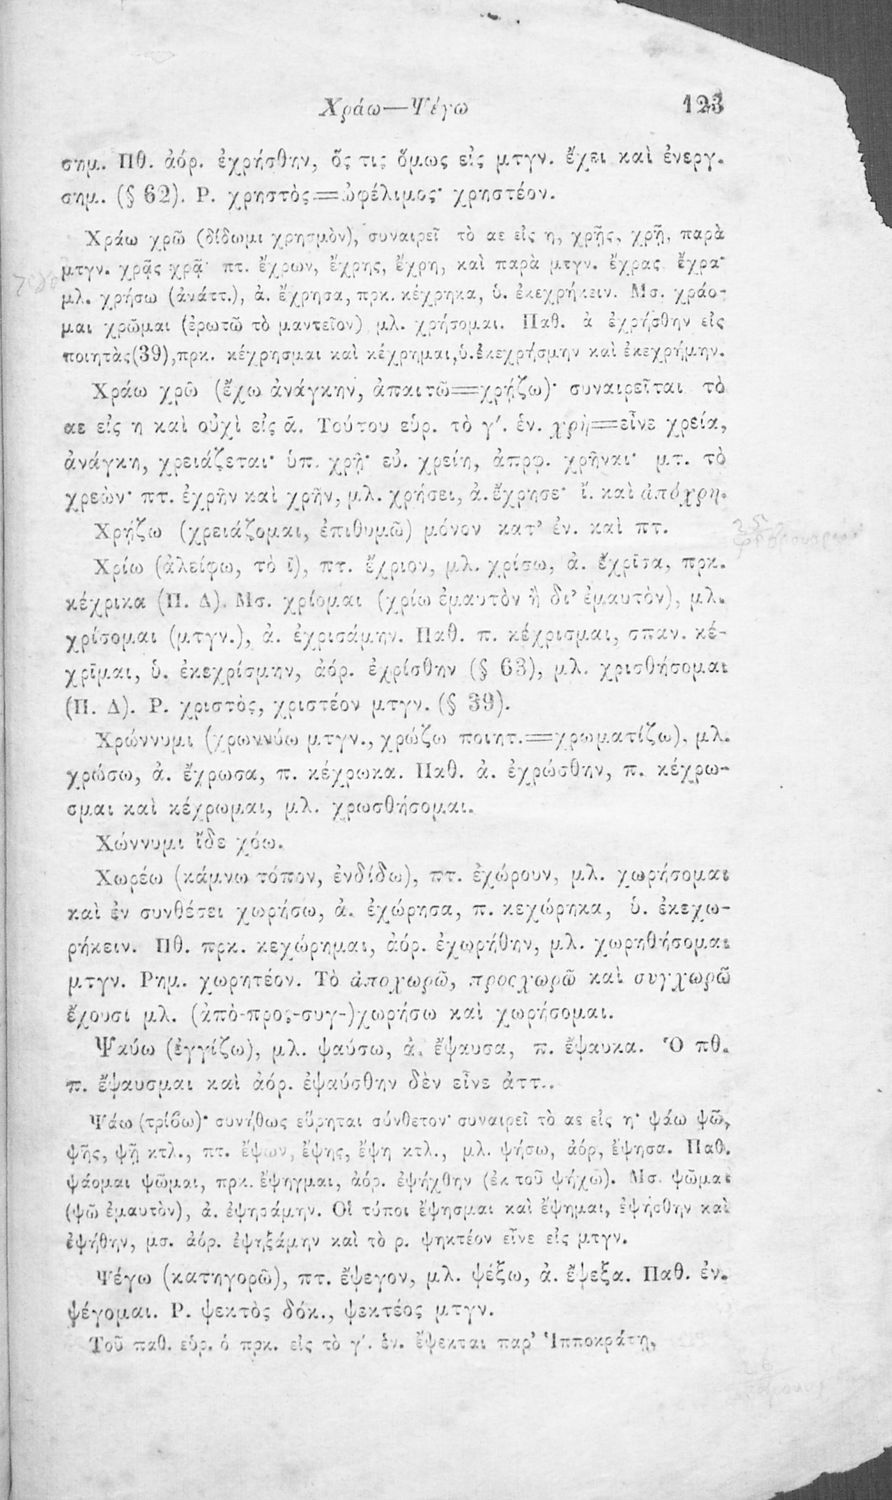 Χράω—Ψέγω 123
σημ. Πθ. ἀόρ. ἐχρήσθην, ὅς τις ὅμως εἰς μτγν. ἔχει καὶ ἐνεργ.
σημ. (§ 62). Ρ. χρηστὸς=ὠφέλιμος· χρηστέον.
Χράω χρῶ (δίδωμι χρησμὸν), συναιρεῖ τὸ αε εἰς η, χρῇς, χρῇ, παρὰ
μτγν. χρᾷς χρᾷ· πτ. ἔχρων, ἔχρης, ἔχρη, καὶ παρὰ μτγν. ἔχρας ἔχρα·
μλ. χρήσω (ἀνάττ.), ἀ. ἔχρησα, πρκ. κέχρηκα, ὑ. ἐκεχρήκειν. Μσ. χράο-
μαι χρῶμαι (ἐρωτῶ τὸ μαντεῖον) μλ. χρήσομαι. Παθ. ἀ ἐχρήσθην εἰς
ποιητὰς(39),πρκ. κέχρησμαι καὶ κέχρημαι,ὑ.ἐκεχρήσμην καὶ ἐκεχρήμην.
Χράω χρῶ (ἔχω ἀνάγκην, ἀπαιτῶ=χρῄζω)· συναιρεῖται τὸ
αε εἰς η καὶ οὐχὶ εἰς ᾱ. Τούτου εὑρ. τὸ γ′. ἑν. χρὴ=εἶνε χρεία,
ἀνάγκη, χρειάζεται· ὑπ. χρῇ· εὐ. χρείη, ἀπρφ. χρῆναι· μτ. τὸ
χρεὼν· πτ. ἐχρῆν καὶ χρῆν, μλ. χρήσει, ἀ. ἔχρησε· ἴ. καὶ ἀπόχρη.
Χρῄζω (χρειάζομαι, ἐπιθυμῶ) μόνον κατ’ ἐν. καὶ πτ.
Χρίω (ἀλείφω, τὸ ῑ), πτ. ἔχριον, μλ. χρίσω, ἀ. ἔχρῑσα, πρκ.
κέχρικα (Π. Δ). Μσ. χρίομαι (χρίω ἐμαυτὸν ἢ δι’ ἐμαυτὸν), μλ.
χρίσομαι (μτγν.), ἀ. ἐχρισάμην. Παθ. π. κέχρισμαι, σπαν. κέ-
χρῑμαι, ὑ. ἐκεχρίσμην, ἀόρ. ἐχρίσθην (§ 63), μλ. χρισθήσομαι
(Π. Δ). Ρ. χριστὸς, χριστέον μτγν. (§ 39).
Χρώννυμι (χρωννύω μτγν., χρώζω ποιητ.=χρωματίζω), μλ.
χρώσω, ἀ. ἔχρωσα, π. κέχρωκα. Παθ. ἀ. ἐχρώσθην, π. κέχρω-
σμαι καὶ κέχρωμαι, μλ. χρωσθήσομαι.
Χώννυμι ἴδε χόω.
Χωρέω (κάμνω τόπον, ἐνδίδω), πτ. ἐχώρουν, μλ. χωρήσομαι
καὶ ἐν συνθέσει χωρήσω, ἀ. ἐχώρησα, π. κεχώρηκα, ὑ. ἐκεχω-
ρήκειν. Πθ. πρκ. κεχώρημαι, ἀόρ. ἐχωρήθην, μλ. χωρηθήσομαι
μτγν. Ρημ. χωρητέον. Τὸ ἀποχωρῶ, προςχωρῶ καὶ συγχωρῶ
ἔχουσι μλ. (ἀπὸ-προς-συγ-)χωρήσω καὶ χωρήσομαι.
Ψαύω (ἐγγίζω), μλ. ψαύσω, ἀ. ἔψαυσα, π. ἔψαυκα. Ὁ πθ.
π. ἔψαυσμαι καὶ ἀόρ. ἐψαύσθην δὲν εἶνε ἀττ..
Ψάω (τρίβω)· συνήθως εὕρηται σύνθετον· συναιρεῖ τὸ αε εἰς η· ψάω ψῶ,
ψῇς, ψῇ κτλ., πτ. ἔψων, ἔψης, ἔψη κτλ., μλ. ψήσω, ἀόρ, ἔψησα. Παθ.
ψάομαι ψῶμαι, πρκ. ἔψηγμαι, ἀόρ. ἐψήχθην (ἐκ τοῦ ψήχω). Μσ. ψῶμαι
(ψῶ ἐμαυτὸν), ἀ. ἐψησάμην. Οἱ τύποι ἔψησμαι καὶ ἔψημαι, ἐψήσθην καὶ
ἐψήθην, μσ. ἀόρ. ἐψηξάμην καὶ τὸ ρ. ψηκτέον εἶνε εἰς μτγν.
Ψέγω (κατηγορῶ), πτ. ἔψεγον, μλ. ψέξω, ἀ. ἔψεξα. Παθ. ἐν.
ψέγομαι. Ρ. ψεκτὸς δόκ., ψεκτέος μτγν.
Τοῦ παθ. εὑρ. ὁ πρκ. εἰς τὸ γ′. ἑν. ἔψεκται παρ’ Ἱπποκράτῃ,